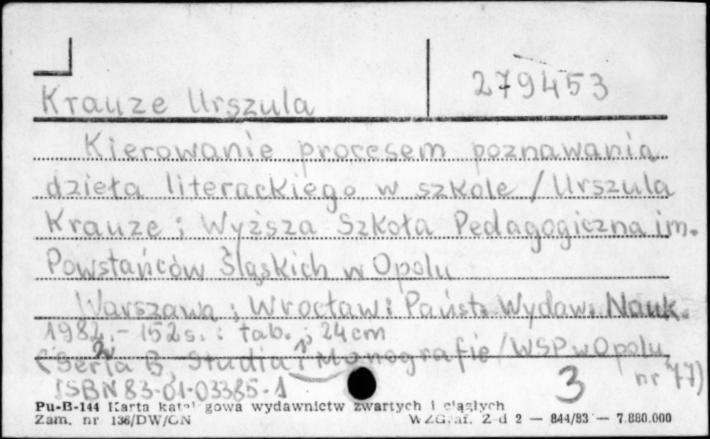 279453
Krauze Urszula
Kierowanie procesem poznawania
dzieła literackiego w szkole / Urszula
Krauze ; Wyższa Szkoła Pedagogiczna im.
Powstańców Śląskich w Opolu
Warszawa ; Wrocław : Państ. Wydaw. Nauk.
1982. - 152 s. : tab. ; 24 cm
(Seria B, Studia i Monografie / WSP w Opolu
nr 77)
ISBN 83-01-03385-1
3
Pu-B-144 Karta katalogowa wydawnictw zwartych i ciągłych
Zam. nr 136/DW/CN WZGraf. Z-d 2 — 844/83 — 7.880.000